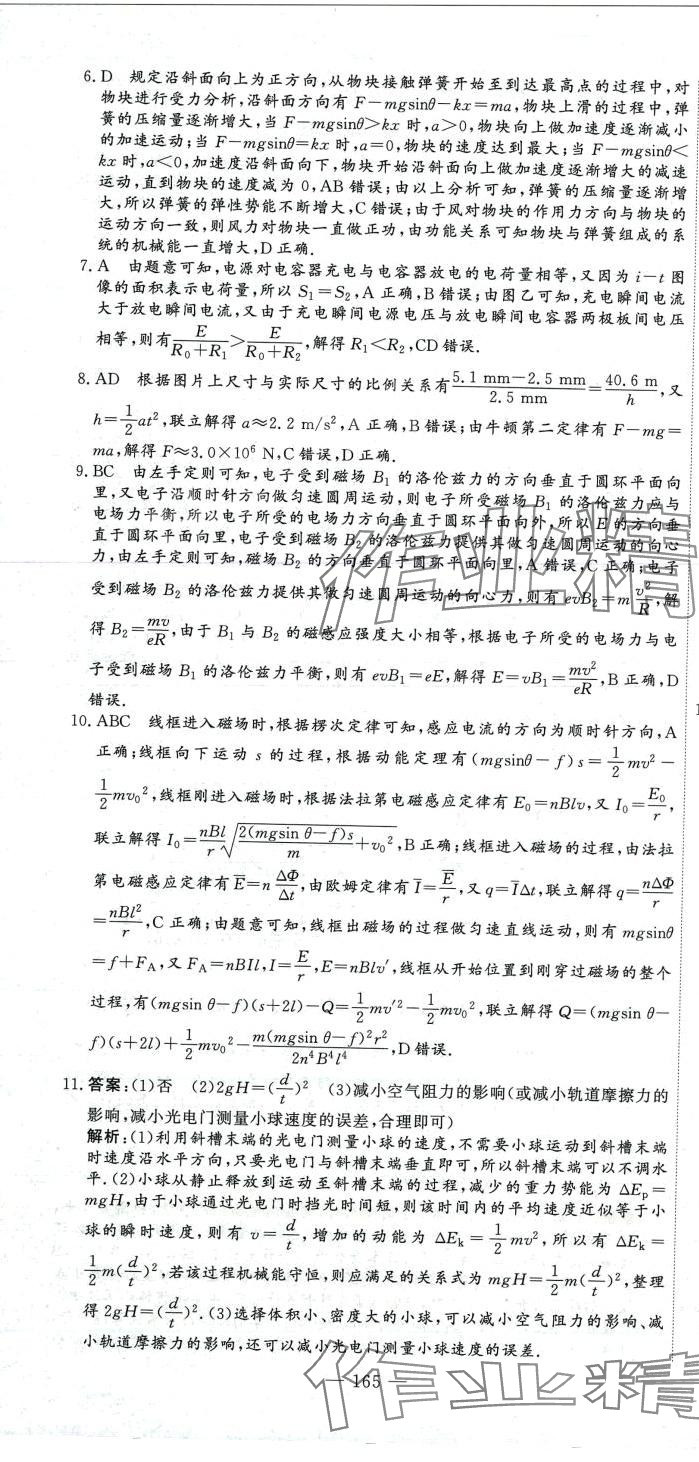 6. D 规定沿斜面向上为正方向,从物块接触弹簧开始至到达最高点的过程中,对
物块进行受力分析,沿斜面方向有 F−mgsinθ−kx=ma,物块上滑的过程中,弹
簧的压缩量逐渐增大,当 F−mgsinθ>kx 时,a>0,物块向上做加速度逐渐减小
的加速运动;当 F−mgsinθ=kx 时,a=0,物块的速度达到最大;当 F−mgsinθ<
kx 时,a<0,加速度沿斜面向下,物块开始沿斜面向上做加速度逐渐增大的减速
运动,直到物块的速度减为 0,AB 错误;由以上分析可知,弹簧的压缩量逐渐增
大,所以弹簧的弹性势能不断增大,C 错误;由于风对物块的作用力方向与物块的
运动方向一致,则风力对物块一直做正功,由功能关系可知物块与弹簧组成的系
统的机械能一直增大,D 正确.
7. A 由题意可知,电源对电容器充电与电容器放电的电荷量相等,又因为 i−t 图
像的面积表示电荷量,所以 S₁=S₂,A 正确,B 错误;由图乙可知,充电瞬间电流
大于放电瞬间电流,又由于充电瞬间电源电压与放电瞬间电容器两极板间电压
相等,则有 E/(R₀+R₁)>E/(R₀+R₂),解得 R₁<R₂,CD 错误.
8. AD 根据图片上尺寸与实际尺寸的比例关系有 (5.1 mm−2.5 mm)/(2.5 mm)=(40.6 m)/h,又
h=1/2at²,联立解得 a≈2.2 m/s²,A 正确,B 错误;由牛顿第二定律有 F−mg=
ma,解得 F≈3.0×10⁶ N,C 错误,D 正确.
9. BC 由左手定则可知,电子受到磁场 B₁ 的洛伦兹力的方向垂直于圆环平面向
里,又电子沿顺时针方向做匀速圆周运动,则电子所受磁场 B₁ 的洛伦兹力应与
电场力平衡,所以电子所受的电场力方向垂直于圆环平面向外,所以 E 的方向垂
直于圆环平面向里,电子受到磁场 B₂ 的洛伦兹力提供其做匀速圆周运动的向心
力,由左手定则可知,磁场 B₂ 的方向垂直于圆环平面向里,A 错误,C 正确;电子
受到磁场 B₂ 的洛伦兹力提供其做匀速圆周运动的向心力,则有 evB₂=m v²/R,解
得 B₂=mv/eR,由于 B₁ 与 B₂ 的磁感应强度大小相等,根据电子所受的电场力与电
子受到磁场 B₁ 的洛伦兹力平衡,则有 evB₁=eE,解得 E=vB₁=mv²/eR,B 正确,D
错误.
10. ABC 线框进入磁场时,根据楞次定律可知,感应电流的方向为顺时针方向,A
正确;线框向下运动 s 的过程,根据动能定理有(mgsinθ−f)s=1/2 mv²−
1/2 mv₀²,线框刚进入磁场时,根据法拉第电磁感应定律有 E₀=nBlv,又 I₀=E₀/r,
联立解得 I₀=nBl/r √(2(mgsin θ−f)s/m+v₀²),B 正确;线框进入磁场的过程,由法拉
第电磁感应定律有 E̅=n ΔΦ/Δt,由欧姆定律有 I̅=E̅/r,又 q=I̅Δt,联立解得 q=nΔΦ/r
=nBl²/r,C 正确;由题意可知,线框出磁场的过程做匀速直线运动,则有 mgsinθ
=f+F_A,又 F_A=nBIl,I=E/r,E=nBlv′,线框从开始位置到刚穿过磁场的整个
过程,有(mgsin θ−f)(s+2l)−Q=1/2 mv′²−1/2 mv₀²,联立解得 Q=(mgsin θ−
f)(s+2l)+1/2 mv₀²−m(mgsin θ−f)²r²/(2n⁴B⁴l⁴),D 错误.
11. 答案:(1)否 (2)2gH=(d/t)² (3)减小空气阻力的影响(或减小轨道摩擦力的
影响,减小光电门测量小球速度的误差,合理即可)
解析:(1)利用斜槽末端的光电门测量小球的速度,不需要小球运动到斜槽末端
时速度沿水平方向,只要光电门与斜槽末端垂直即可,所以斜槽末端可以不调水
平.(2)小球从静止释放到运动至斜槽末端的过程,减少的重力势能为 ΔEₚ=
mgH,由于小球通过光电门时挡光时间短,则该时间内的平均速度近似等于小
球的瞬时速度,则有 v=d/t,增加的动能为 ΔEₖ=1/2 mv²,所以有 ΔEₖ=
1/2 m(d/t)²,若该过程机械能守恒,则应满足的关系式为 mgH=1/2 m(d/t)²,整理
得 2gH=(d/t)².(3)选择体积小、密度大的小球,可以减小空气阻力的影响、减
小轨道摩擦力的影响,还可以减小光电门测量小球速度的误差.
— 165 —
作业精
作业精